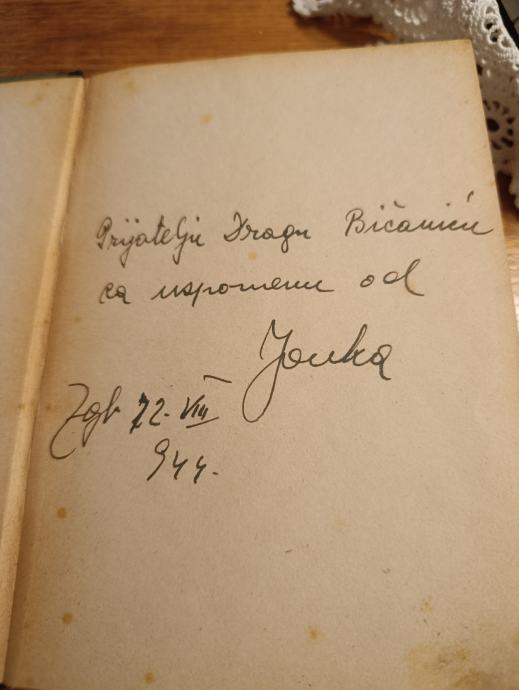 Prijatelju Dragu Bićaniću
za uspomenu od
Janka
Zgb 22. VIII
944.